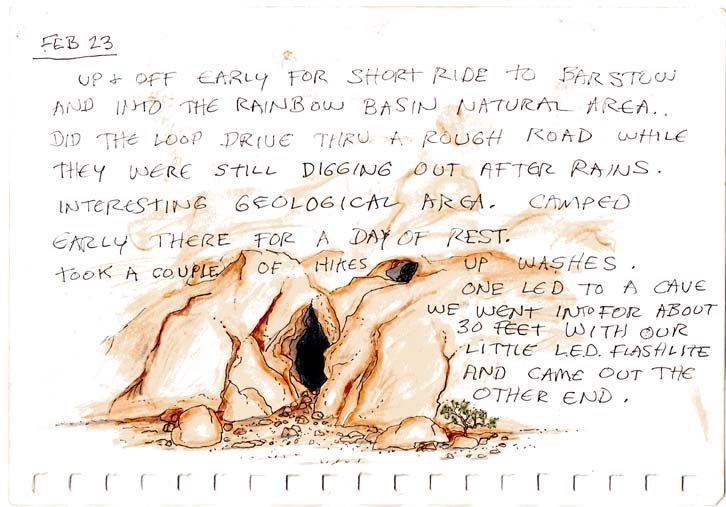 FEB 23
UP & OFF EARLY FOR SHORT RIDE TO BARSTOW
AND INTO THE RAINBOW BASIN NATURAL AREA..
DID THE LOOP DRIVE THRU A ROUGH ROAD WHILE
THEY WERE STILL DIGGING OUT AFTER RAINS.
INTERESTING GEOLOGICAL AREA. CAMPED
EARLY THERE FOR A DAY OF REST.
TOOK A COUPLE OF HIKES UP WASHES.
ONE LED TO A CAVE
WE WENT INTO FOR ABOUT
30 FEET WITH OUR
LITTLE LED. FLASHLITE
AND CAME OUT THE
OTHER END.